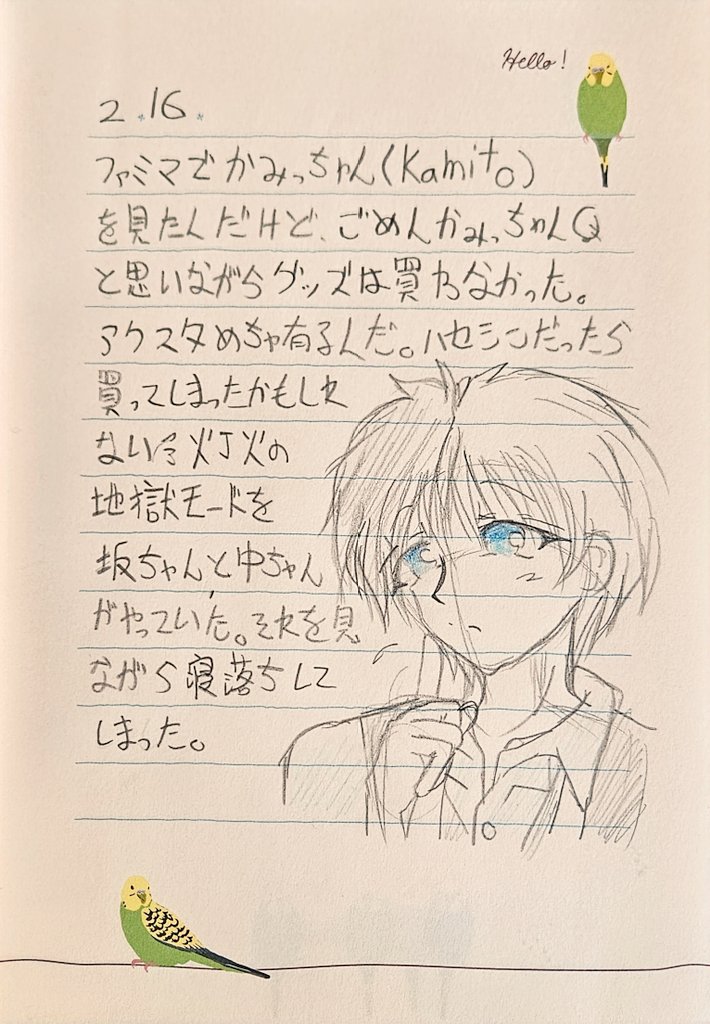 Hello!
2.16.
ファミマでかみっちゃん(Kamito)
を見たんだけど、ごめんかみっちゃんQ
と思いながらグッズは買わなかった。
アクスタめちゃ有るんだ。ハセシンだったら
買ってしまったかもしれ
ない 灯火の
地獄モードを
坂ちゃんと中ちゃん
がやっていた。それを見
ながら寝落ちして
しまった。